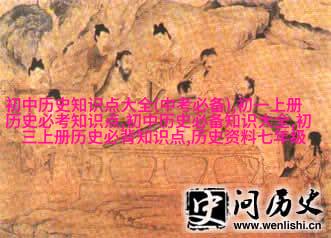 初中历史知识点大全(中考必备),初一上册
历史必考知识点,初中历史必备知识大全,初
三上册历史必背知识点,历史资料七年级
史问历史
www.wenlishi.cn